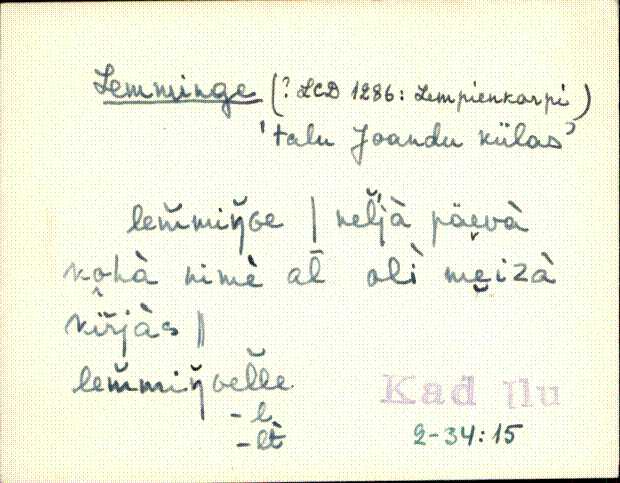 Lemminge (? LCD 1286: Lempienkarpi)
'talu Joandu külas'
lem̆miŋ̆ɢe | nel̆jà päevà
kohà nimè al̄ olì mei̯zà
kir̆jàs ‖
lem̆miŋ̆ɢel̆le
-l
-lt̀
Kad Ilu
2-34:15